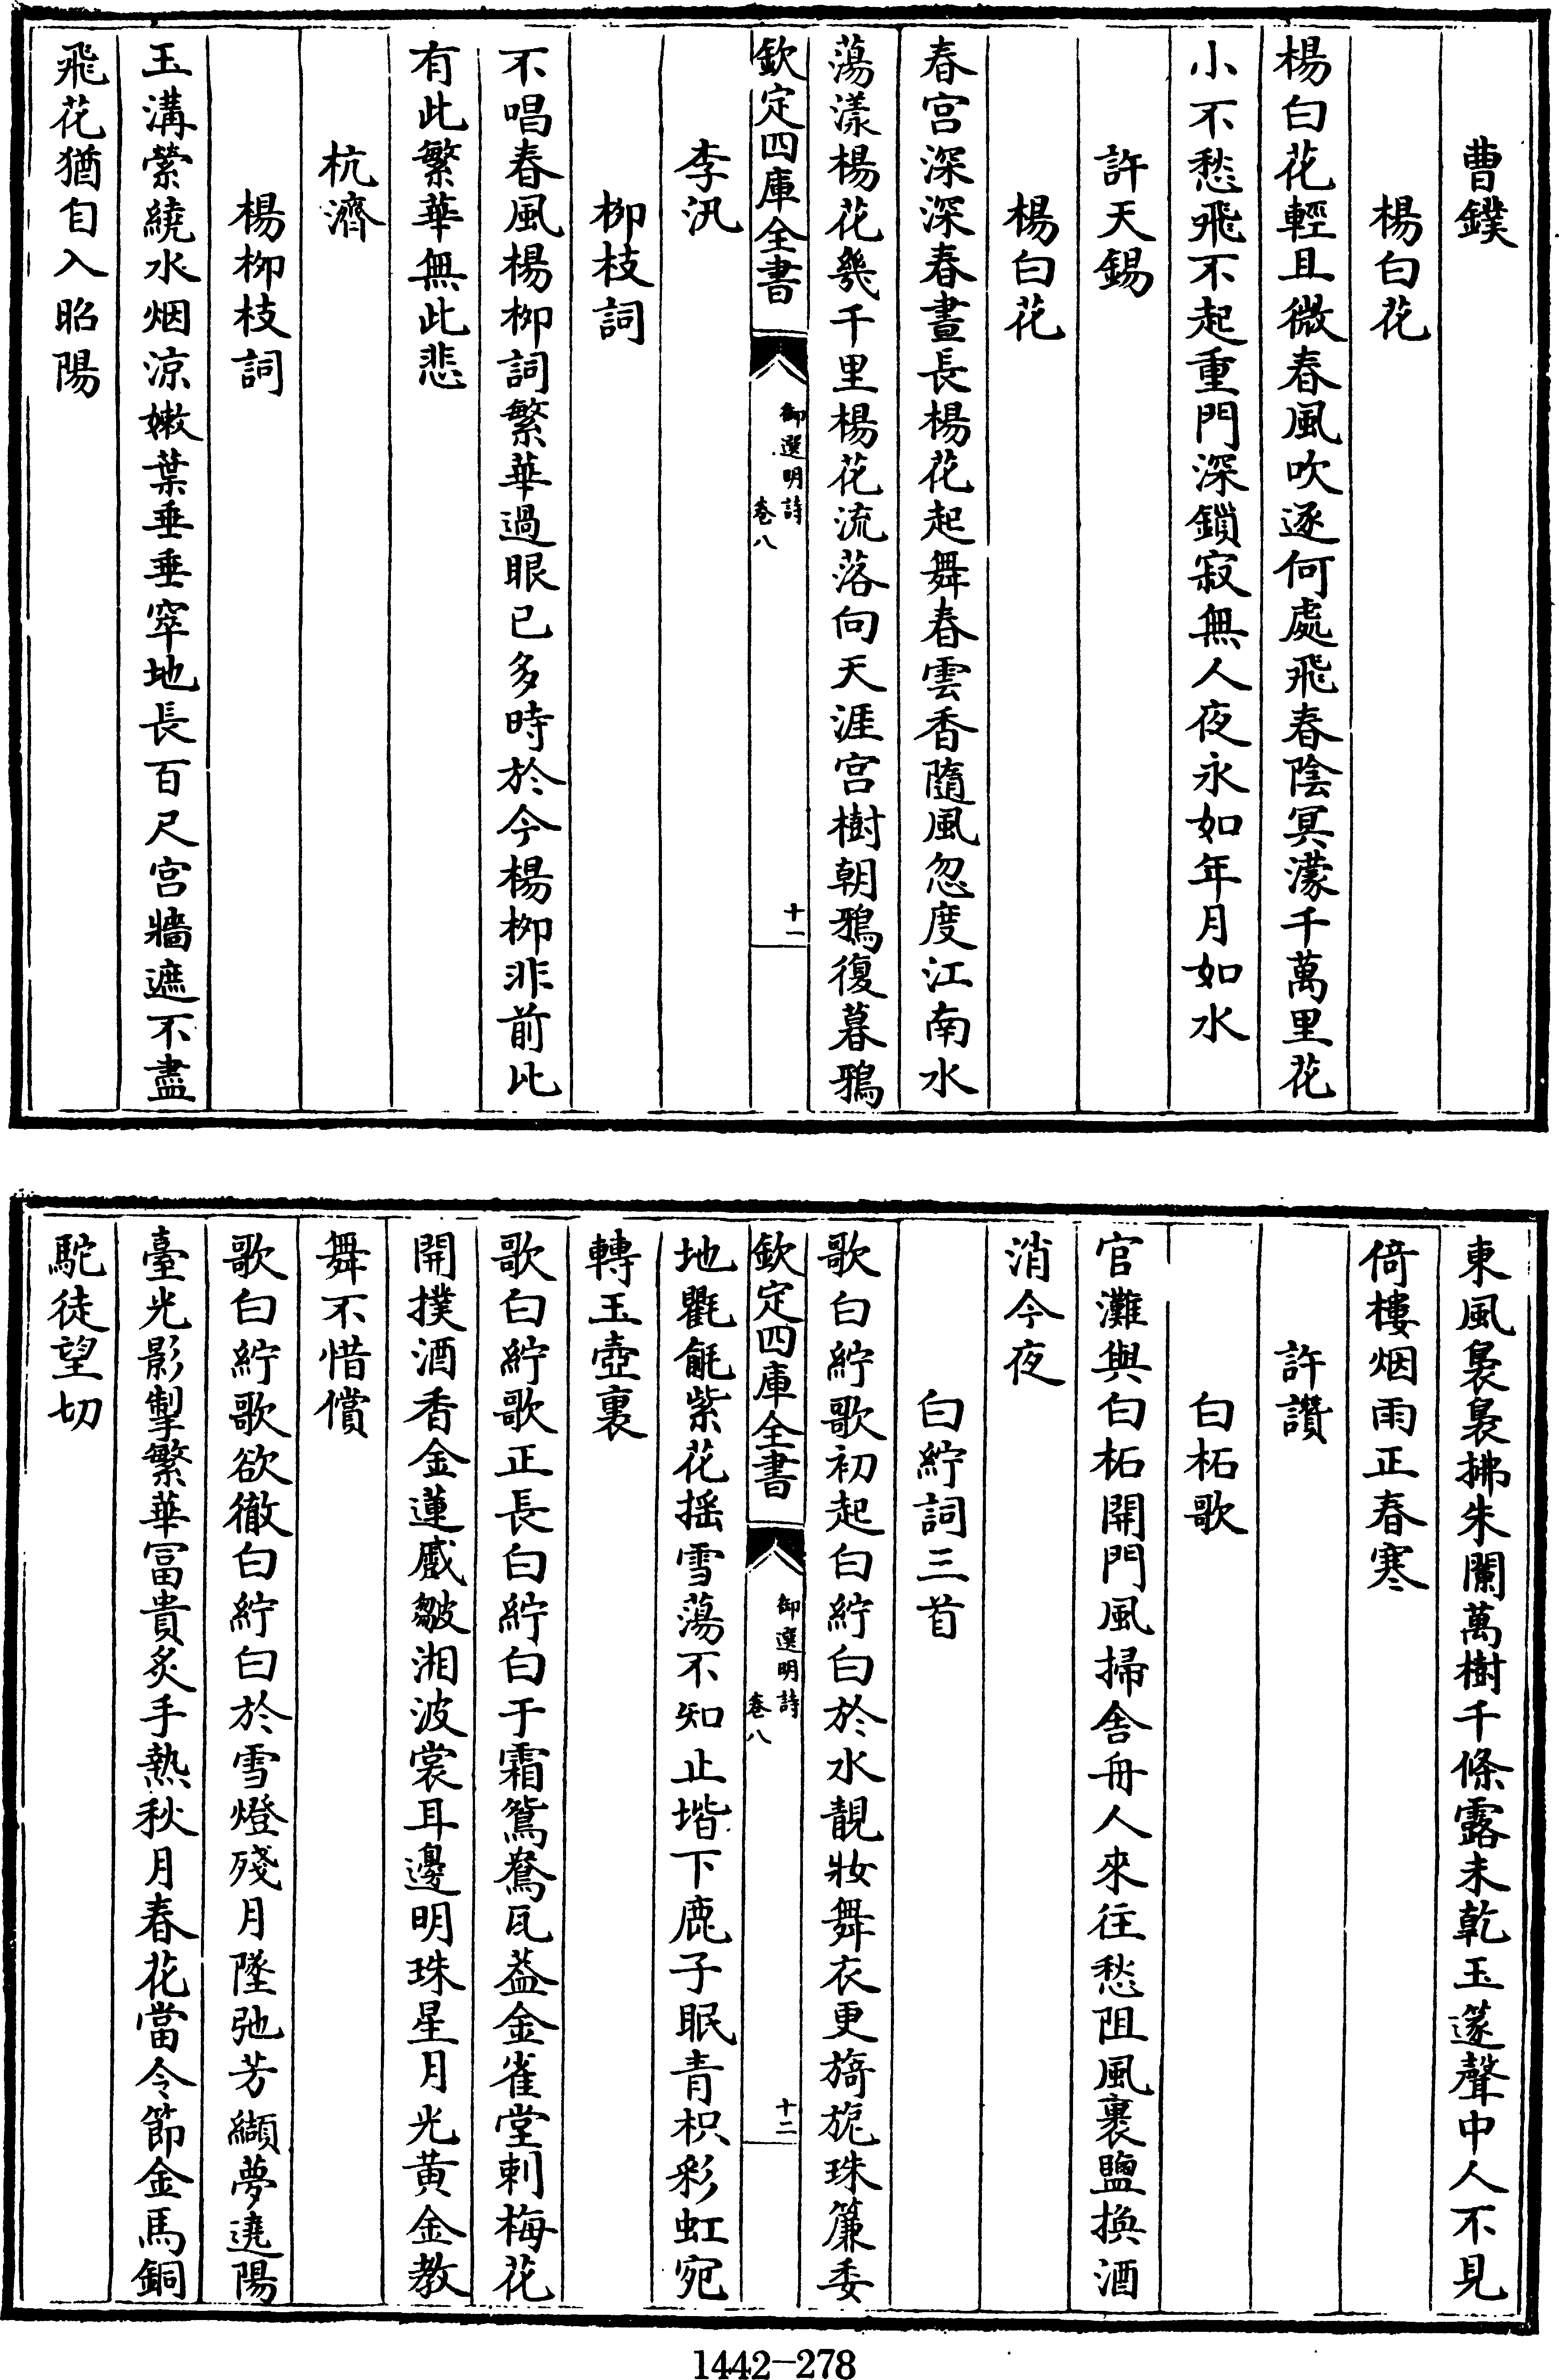 曹鏷
楊白花
楊白花輕且微春風吹逐何處飛春陰冥濛千萬里花
小不愁飛不起重門深鎖寂無人夜永如年月如水
許天錫
楊白花
春宫深深春晝長楊花起舞春雲香隨風忽度江南水
蕩漾楊花幾千里楊花流落向天涯宫樹朝鴉復暮鴉
欽定四庫全書
御選明詩
卷八
十一
李汎
柳枝詞
不唱春風楊柳詞繁華過眼已多時於今楊柳非前比
有此繁華無此悲
杭濟
楊柳枝詞
玉溝縈繞水烟涼嫩葉垂垂窣地長百尺宫牆遮不盡
飛花猶自入昭陽
東風裊裊拂朱闌萬樹千條露未乾玉篴聲中人不見
倚樓烟雨正春寒
許讚
白柘歌
官灘與白柘開門風掃舍舟人來往愁阻風裹鹽換酒
消今夜
白紵詞三首
歌白紵歌初起白紵白於水靚妝舞衣更旖旎珠簾委
欽定四庫全書
御選明詩
卷八
十二
地氍毹紫花揺雪蕩不知止堦下鹿子眠青枳彩虹宛
轉玉壺裏
歌白紵歌正長白紵白于霜鴛鴦瓦葢金雀堂刺梅花
開撲酒香金蓮蹙皺湘波裳耳邊明珠星月光黄金教
舞不惜償
歌白紵歌欲徹白紵白於雪燈殘月墜弛芳纈夢遶陽
臺光影掣繁華冨貴炙手熱秋月春花當令節金馬銅
駝徒望切
1442-278